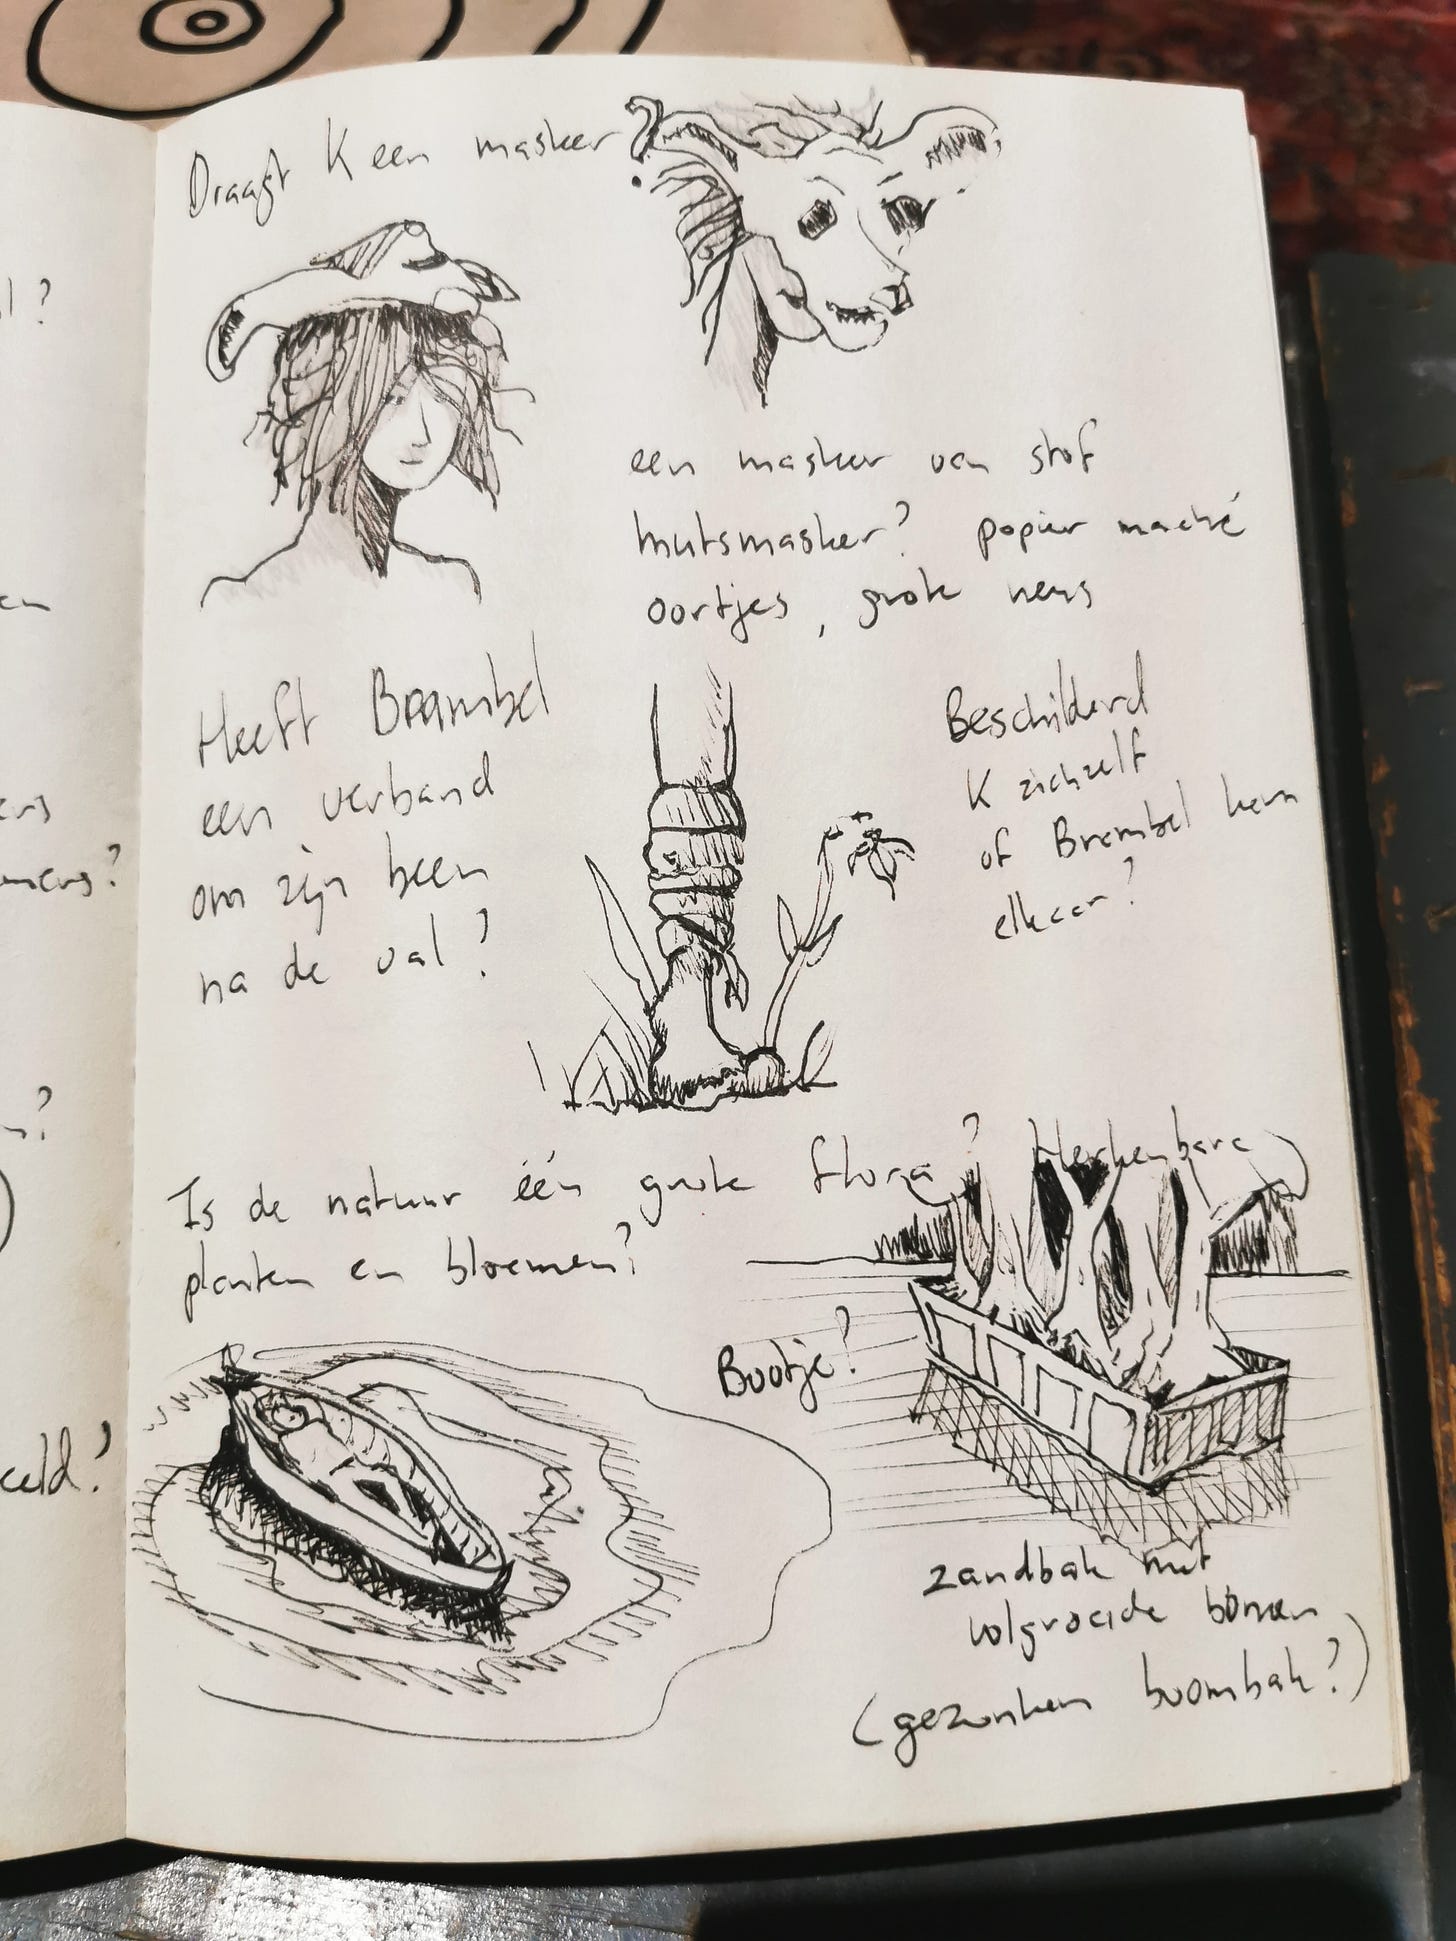 Draagt K een masker?
een masker van stof
mutsmasker? papier maché
oortjes, grote neus
Heeft Brambel
een verband
om zijn been
na de val?
Beschilderd
K zichzelf
of Brambel hem
elkaar?
Is de natuur één grote flora? Herkenbare
planten en bloemen?
Bootje?
zandbak met
volgroeide bomen
(gezonken boombak?)
l?
en
ers
?
eeld?